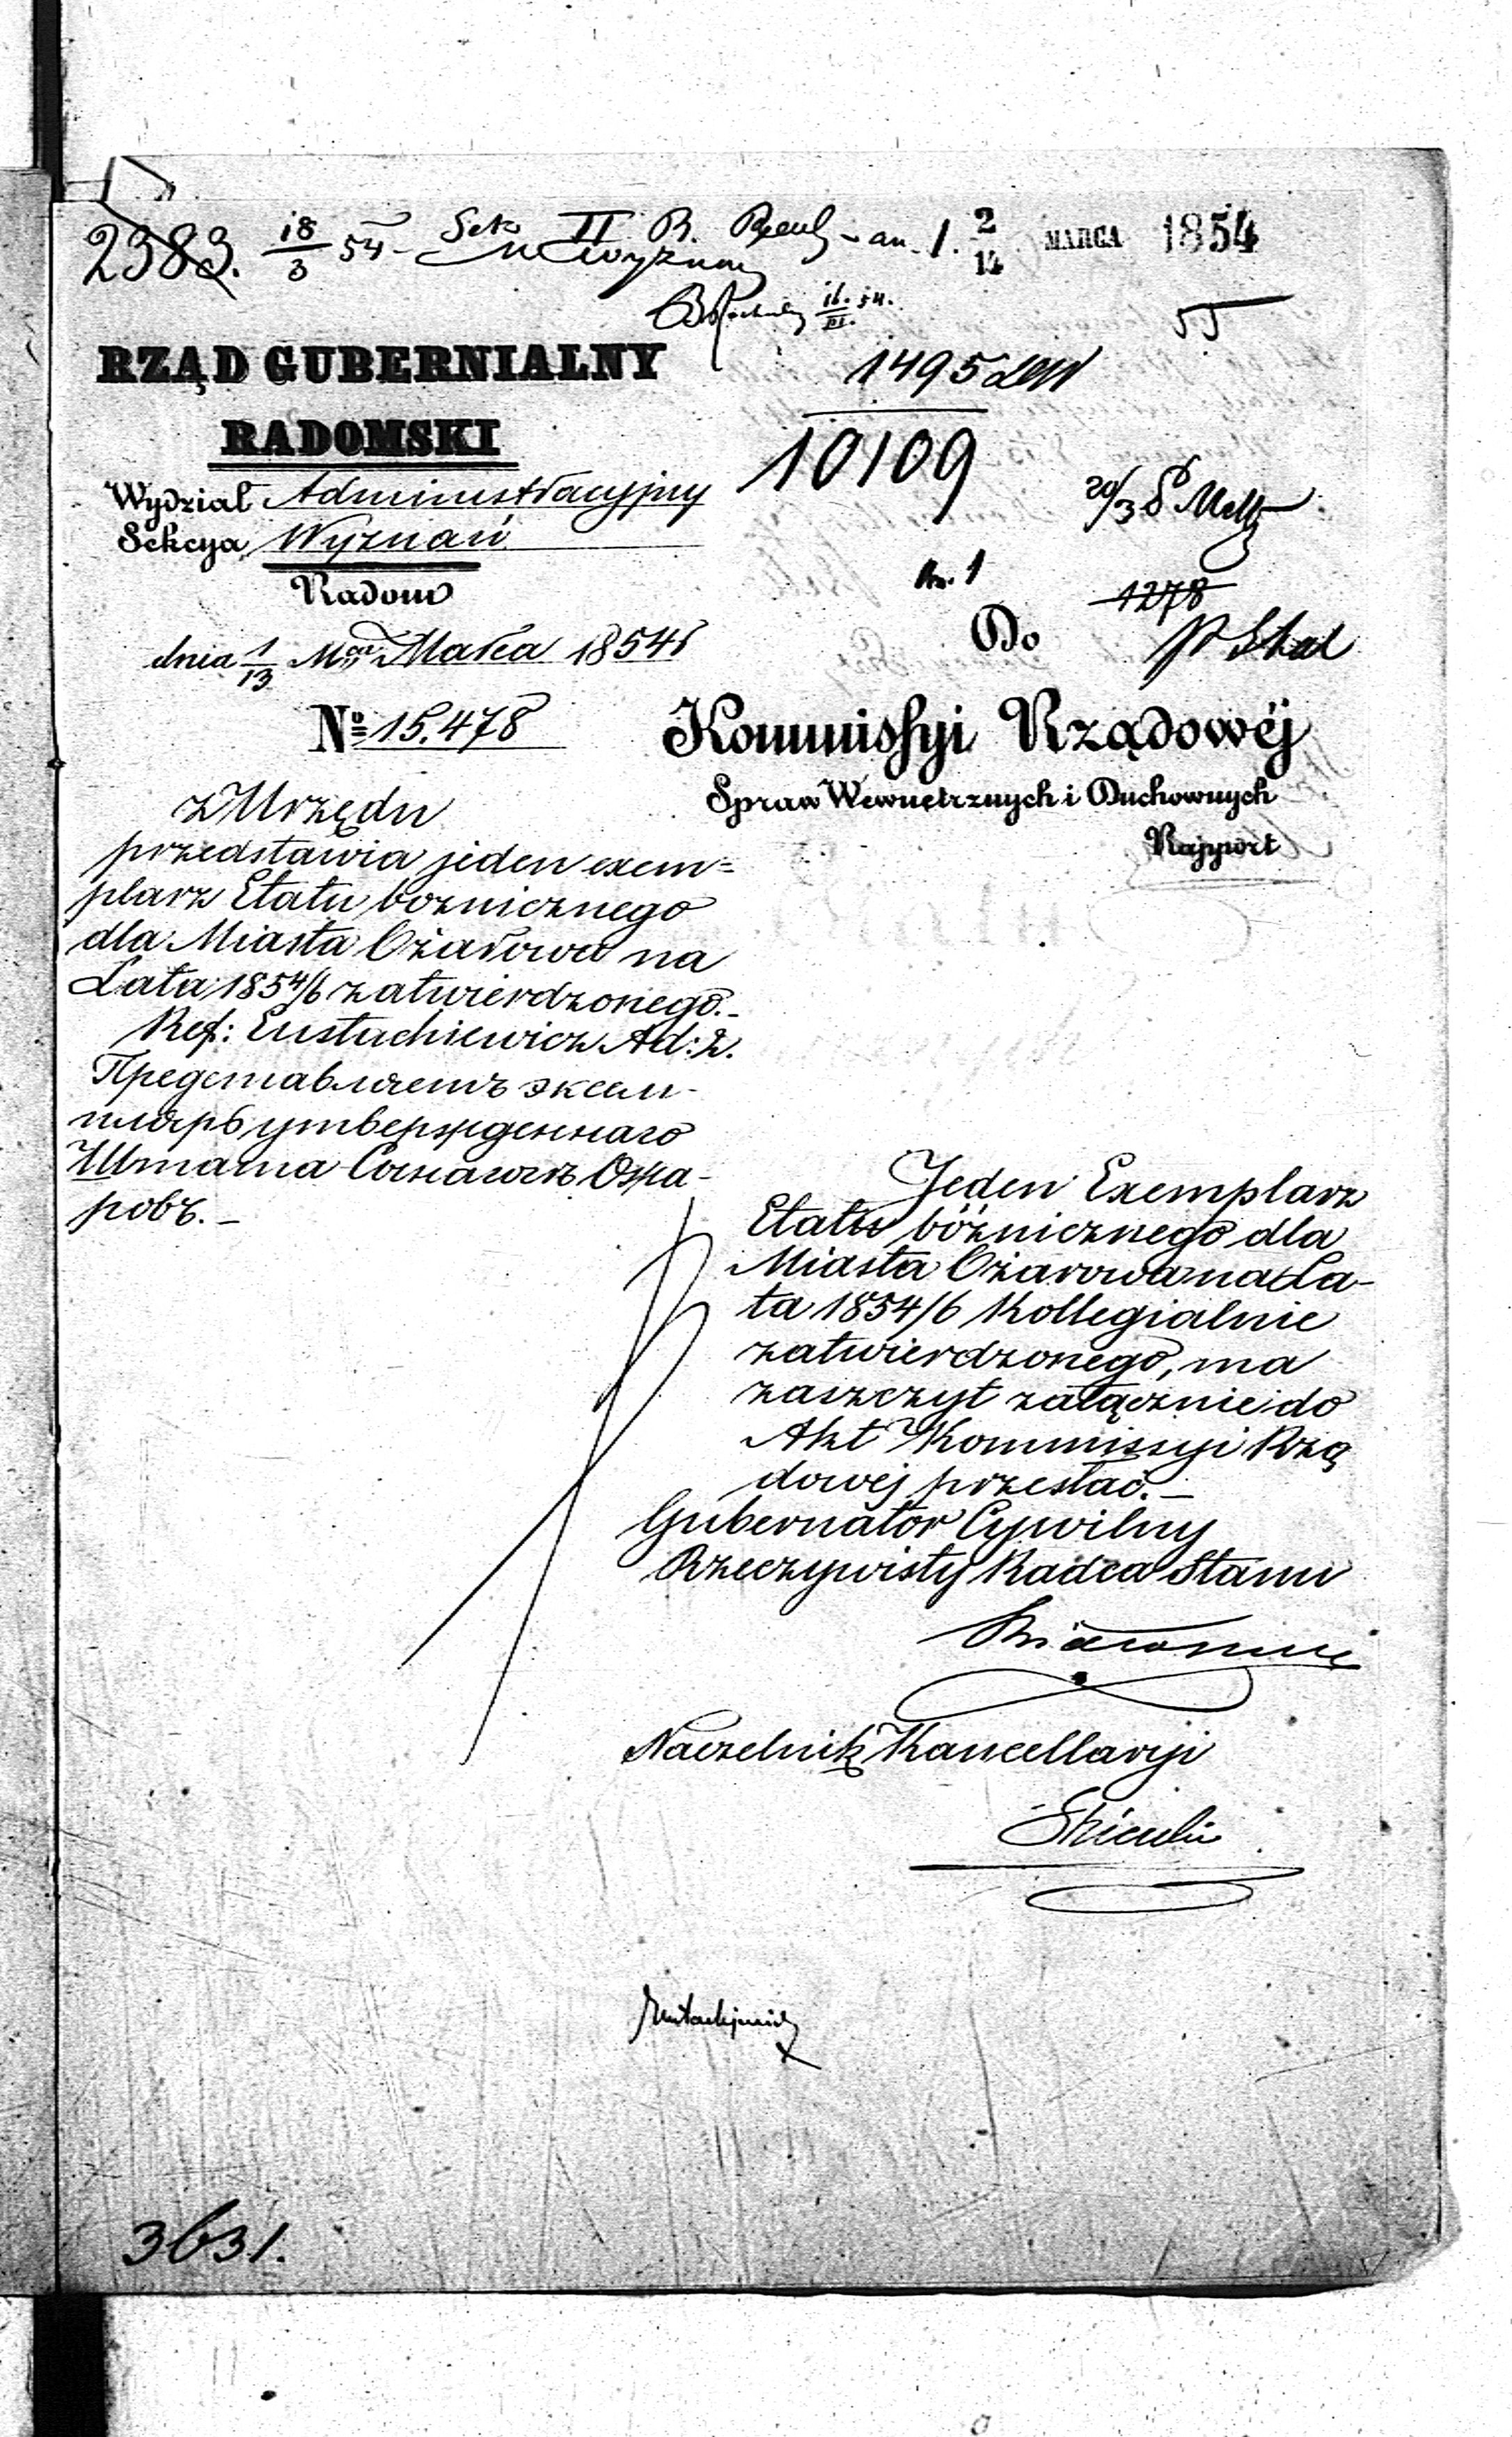 2383. 18/3 54 - Sek II R. an. 1. 2/14 MARCA 1854
55
RZĄD GUBERNIALNY
RADOMSKI
Wydział Administracyjny
Sekcya Wyznań
Radom
dnia 1/13 Marca 1854 r
№ 15.478
1495
10109
20/3
An. 1
1278
Do
Kommissyi Rządowéj
Spraw Wewnętrznych i Duchownych
Rapport
z Urzędu
przedstawia jeden exem=
plarz Etatu bożnicznego
dla Miasta Ożarowa na
Lata 1854/6 zatwierdzonego.-
Ref: Eustachiewicz Ad: 2.
Представляетъ экзем-
пляръ утвержденнаго
Штата Божницъ Ожа-
ровъ.-
Jeden Exemplarz
Etatu bóżnicznego dla
Miasta Ożarowa na La-
ta 1854/6 Kollegialnie
zatwierdzonego, ma
zaszczyt załącznie do
Akt Kommissyi Rzą
dowéj przesłać.-
Gubernator Cywilny
Rzeczywisty Radca Stanu
Białoskurski
Naczelnik Kancellaryi
Eustachiewicz
3631.